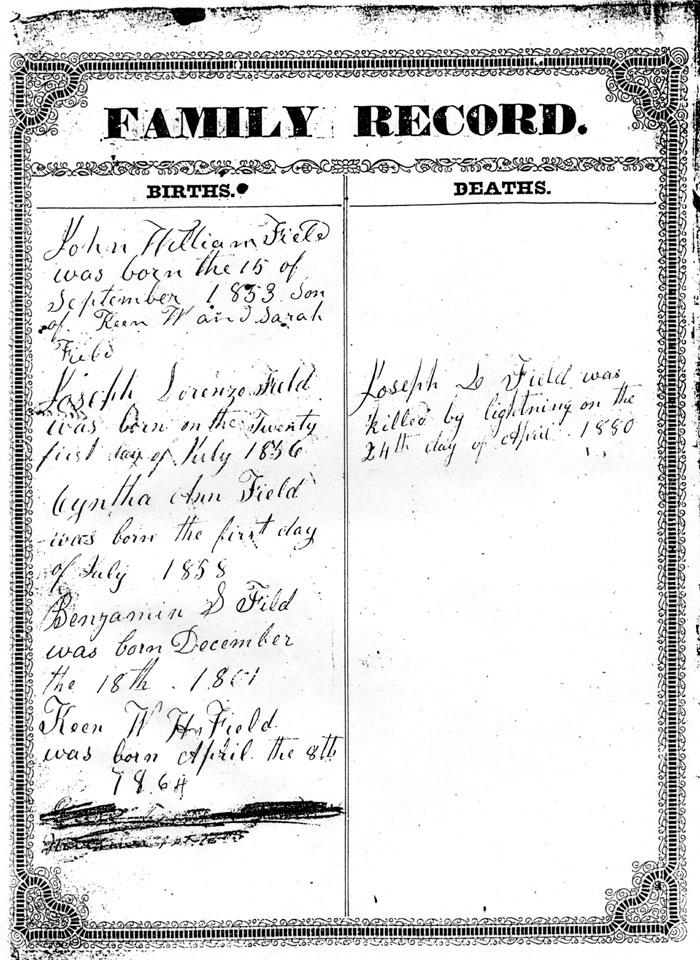 FAMILY RECORD.
BIRTHS.
John William Field
was born the 15 of
September 1853 Son
of Keen W and Sarah
Field
Joseph Lorenzo Field
was born on the Twenty
first day of July 1856
Cyntha Ann Field
was born the first day
of July 1858
Benjamin S Fild
was born December
the 18th . 1861
Keen W H Field
was born April the 8th
1864
DEATHS.
Joseph L Field was
killed by lightning on the
24th day of April 1880